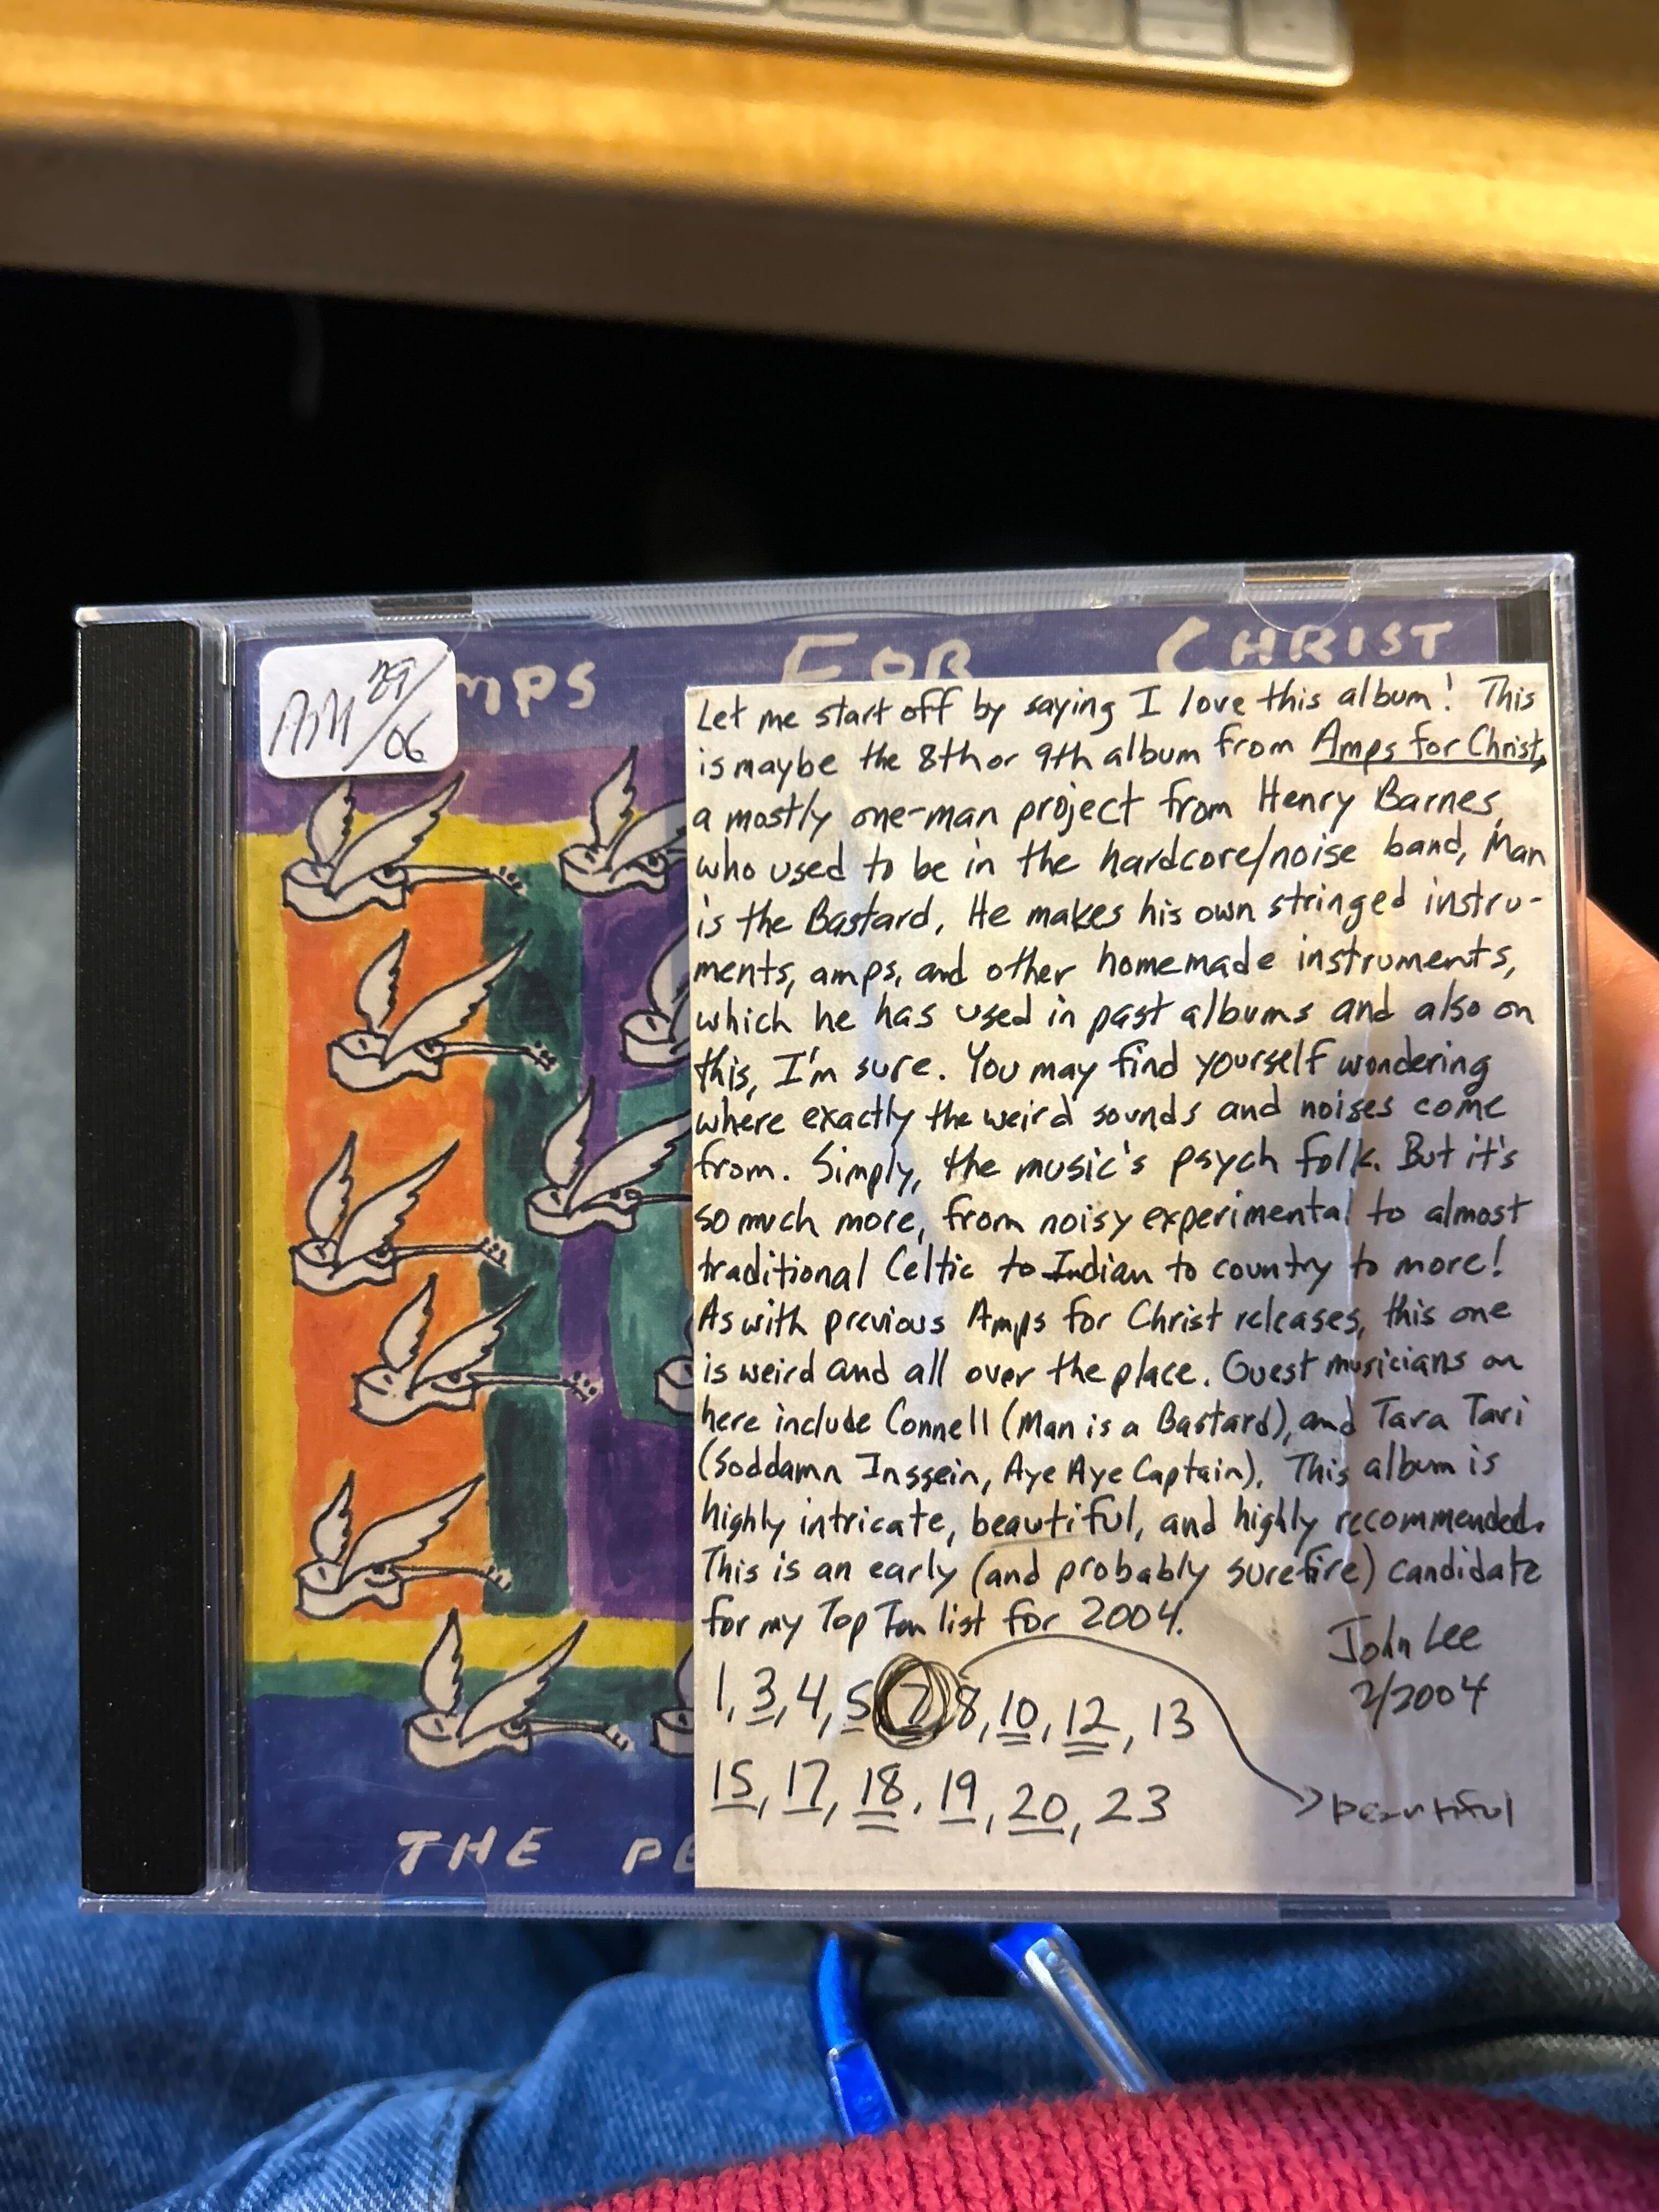 MPS FOR CHRIST
29/
06
Let me start off by saying I love this album! This
is maybe the 8th or 9th album from Amps for Christ,
a mostly one-man project from Henry Barnes,
who used to be in the hardcore/noise band, Man
is the Bastard. He makes his own stringed instru-
ments, amps, and other homemade instruments,
which he has used in past albums and also on
this, I'm sure. You may find yourself wondering
where exactly the weird sounds and noises come
from. Simply, the music's psych folk. But it's
so much more, from noisy experimental to almost
traditional Celtic to Indian to country to more!
As with previous Amps for Christ releases, this one
is weird and all over the place. Guest musicians on
here include Connell (Man is a Bastard), and Tara Tavi
(Soddamn Inssein, Aye Aye Captain). This album is
highly intricate, beautiful, and highly recommended.
This is an early (and probably surefire) candidate
for my Top Ten list for 2004.
John Lee
2/2004
1, 3, 4, 5 7 8, 10, 12, 13
15, 17, 18, 19, 20, 23
beautiful
THE PE